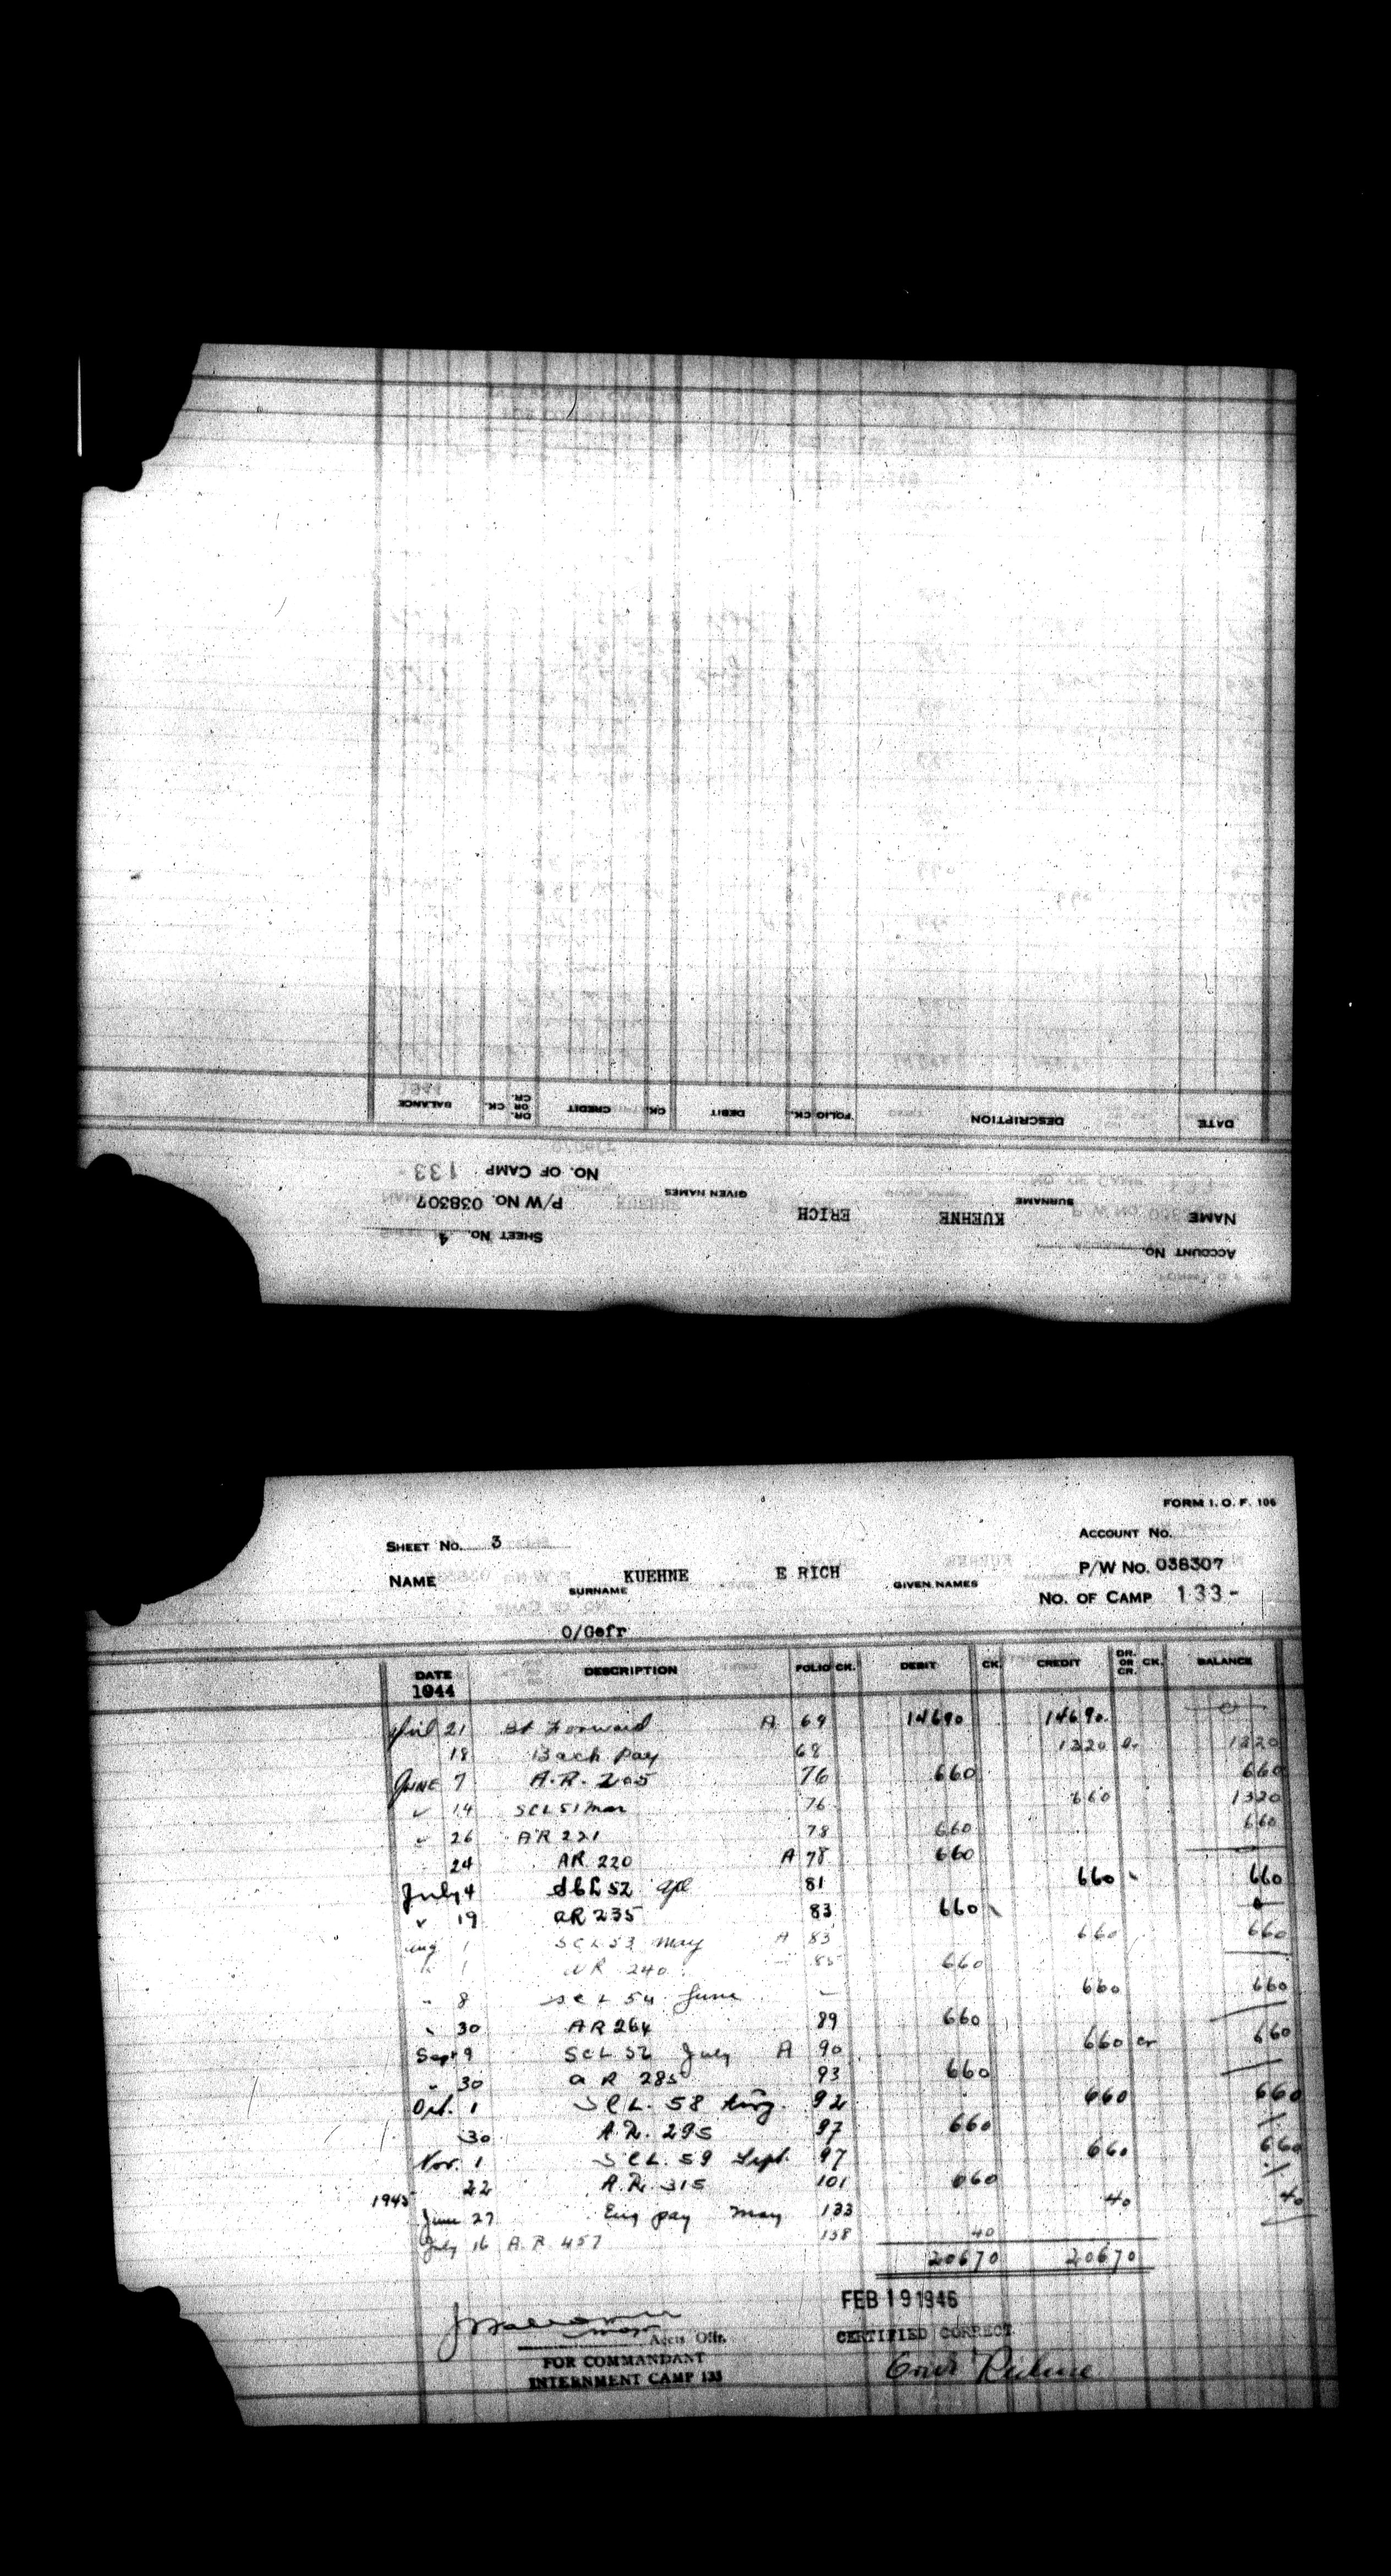 ACCOUNT No. SHEET No. 4
NAME KUEHNE SURNAME ERICH GIVEN NAMES P/W No. 038307
NO. OF CAMP 133
DATE DESCRIPTION FOLIO CK. DEBIT CK. CREDIT DR. OR CR. CK. BALANCE
FORM I. O. F. 106
SHEET No. 3 ACCOUNT No.
NAME KUEHNE SURNAME E RICH GIVEN NAMES P/W No. 038307
NO. OF CAMP 133-
O/Gefr
DATE DESCRIPTION FOLIO CK. DEBIT CK. CREDIT DR. OR CR. CK. BALANCE
1944
21 Forward A 69 14690 14690
18 Back Pay 68 1320 1320
June 7 A.R. 205 76 660 660
14 SCL 51 Mar 76 660 1320
26 AR 221 78 660 660
24 AR 220 A 78 660
July 4 SCL 52 81 660 660
19 AR 235 83 660
Aug 1 SCL 53 May A 83 660 660
1 AR 240 85 660
8 SCL 54 June 660 660
30 AR 264 89 660
Sept 9 SCL July A 90 660 cr 660
30 A R 285 93 660
Oct. 1 SCL. 58 Aug. 92 660 660
30 A.R. 295 97 660
Nov. 1 SCL. 59 Sept. 97 660 660
22 A.R. 315 101 660
1945
June 27 pay May 133 40 40
July 16 A.R. 457 138 40
20670 20670
FEB 19 1946
Accts Offr. CERTIFIED CORRECT
FOR COMMANDANT
INTERNMENT CAMP 133